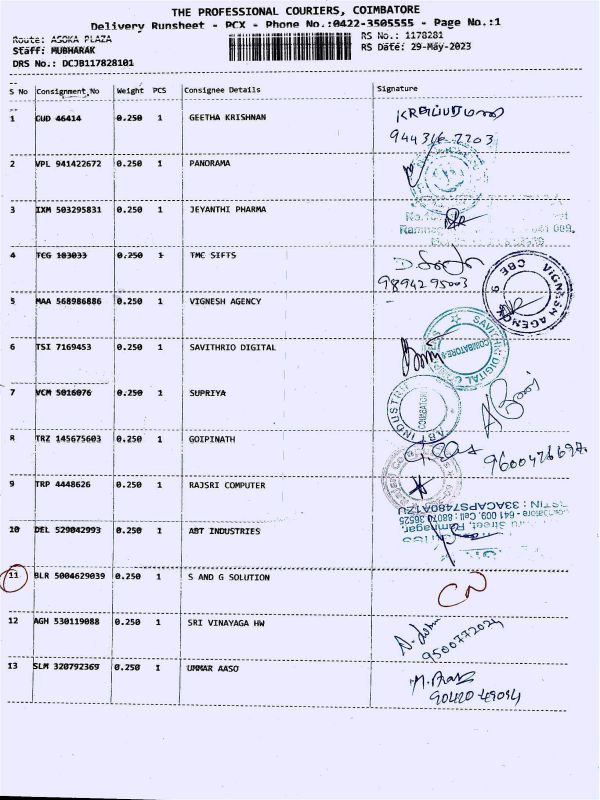 THE PROFESSIONAL COURIERS, COIMBATORE
Delivery Runsheet - PCX - Phone No.:0422-3505555 - Page No.:1
Route: ASOKA PLAZA RS No.: 1178281
Staff: MUBHARAK RS Date: 29-May-2023
DRS No.: DCJB117828101
S No Consignment No Weight PCS Consignee Details Signature
1 CUD 46414 0.250 1 GEETHA KRISHNAN
2 VPL 941422672 0.250 1 PANORAMA
3 IXM 503295831 0.250 1 JEYANTHI PHARMA
4 TCG 103033 0.250 1 TMC SIFTS
9894295003
5 MAA 568986886 0.250 1 VIGNESH AGENCY
VIGNESH AGENCY CBE 9
6 TSI 7169453 0.250 1 SAVITHRIO DIGITAL
SAVITHRI DIGITAL COIMBATORE
7 VCM 5016076 0.250 1 SUPRIYA
ABT INDUSTRI COIMBATORE
8 TRZ 145675603 0.250 1 GOIPINATH
9 TRP 4448626 0.250 1 RAJSRI COMPUTER
GSTIN : 33ACAPS7480A1ZU
10 DEL 529842993 0.250 1 ABT INDUSTRIES
11 BLR 5004629039 0.250 1 S AND G SOLUTION
12 AGH 530119088 0.250 1 SRI VINAYAGA HW
9500772024
13 SLM 320792369 0.250 1 UMMAR AASO